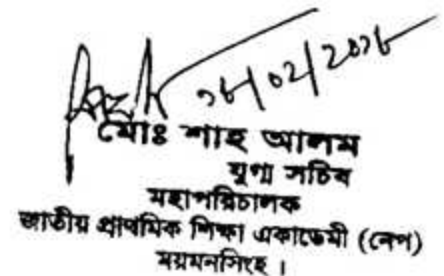 মোঃ শাহ আলম
যুগ্ম সচিব
মহাপরিচালক
জাতীয় প্রাথমিক শিক্ষা একাডেমী (নেপ)
ময়মনসিংহ।